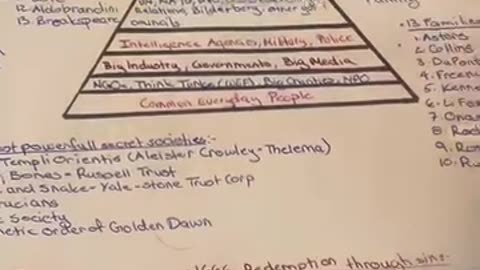 12. Aldobrandini
13. Breakspeare
Relations, Bilderberg, other
councils
Intelligence Agencies, Military, Police
Big Industry, Governments, Big Media
NGOs, Think Tanks (WEF), Big Charities, NPO
Common Everyday People
13 Familie
1. Astors
2. Collins
3. DuPont
4. Freem
5. Kenne
6. Li
7. Onas
8. Rock
9. Ro
10. Ru
powerfull secret societies:-
Templi Orientis (Aleister Crowley-Thelema)
Bones - Russell Trust
and Snake - Yale - stone Trust Corp
rucians
Society
etic Order of Golden Dawn
1666 Redemption through sins:-